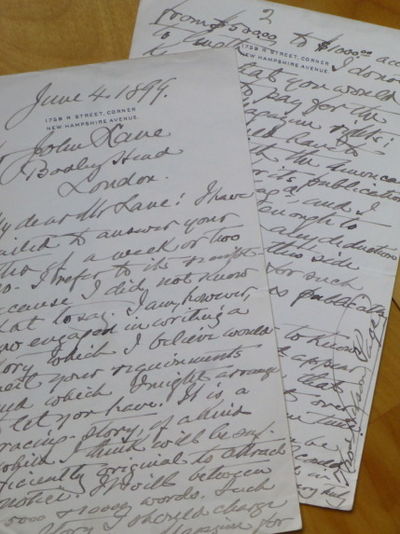 June 4. 1899.
1758 N STREET, CORNER
NEW HAMPSHIRE AVENUE.
John Lane
Bodley Head
London.
My dear Mr Lane: I have
failed to answer your
letter of a week or two
ago. I refer to its
because I did not know
what to say. I am, however,
now engaged in writing a
story which I believe would
meet your requirements
and which I might arrange
to let you have. It is a
racing-story, of a kind
which I think will be suf-
ficiently original to attract
notice. It will be between
5000 & 10000 words. Such
story I should charge
magazine for
2
from $500.00 to $1000.00
to length. I do not
1758 N STREET, CORNER
NEW HAMPSHIRE AVENUE.
that you would
to pay for the
magazine rights:
have to
the American
for its publication
and I
enough to
any deduction
this side
for such
publicity
to know
appear
that
over
be
Thos. Nelson Page